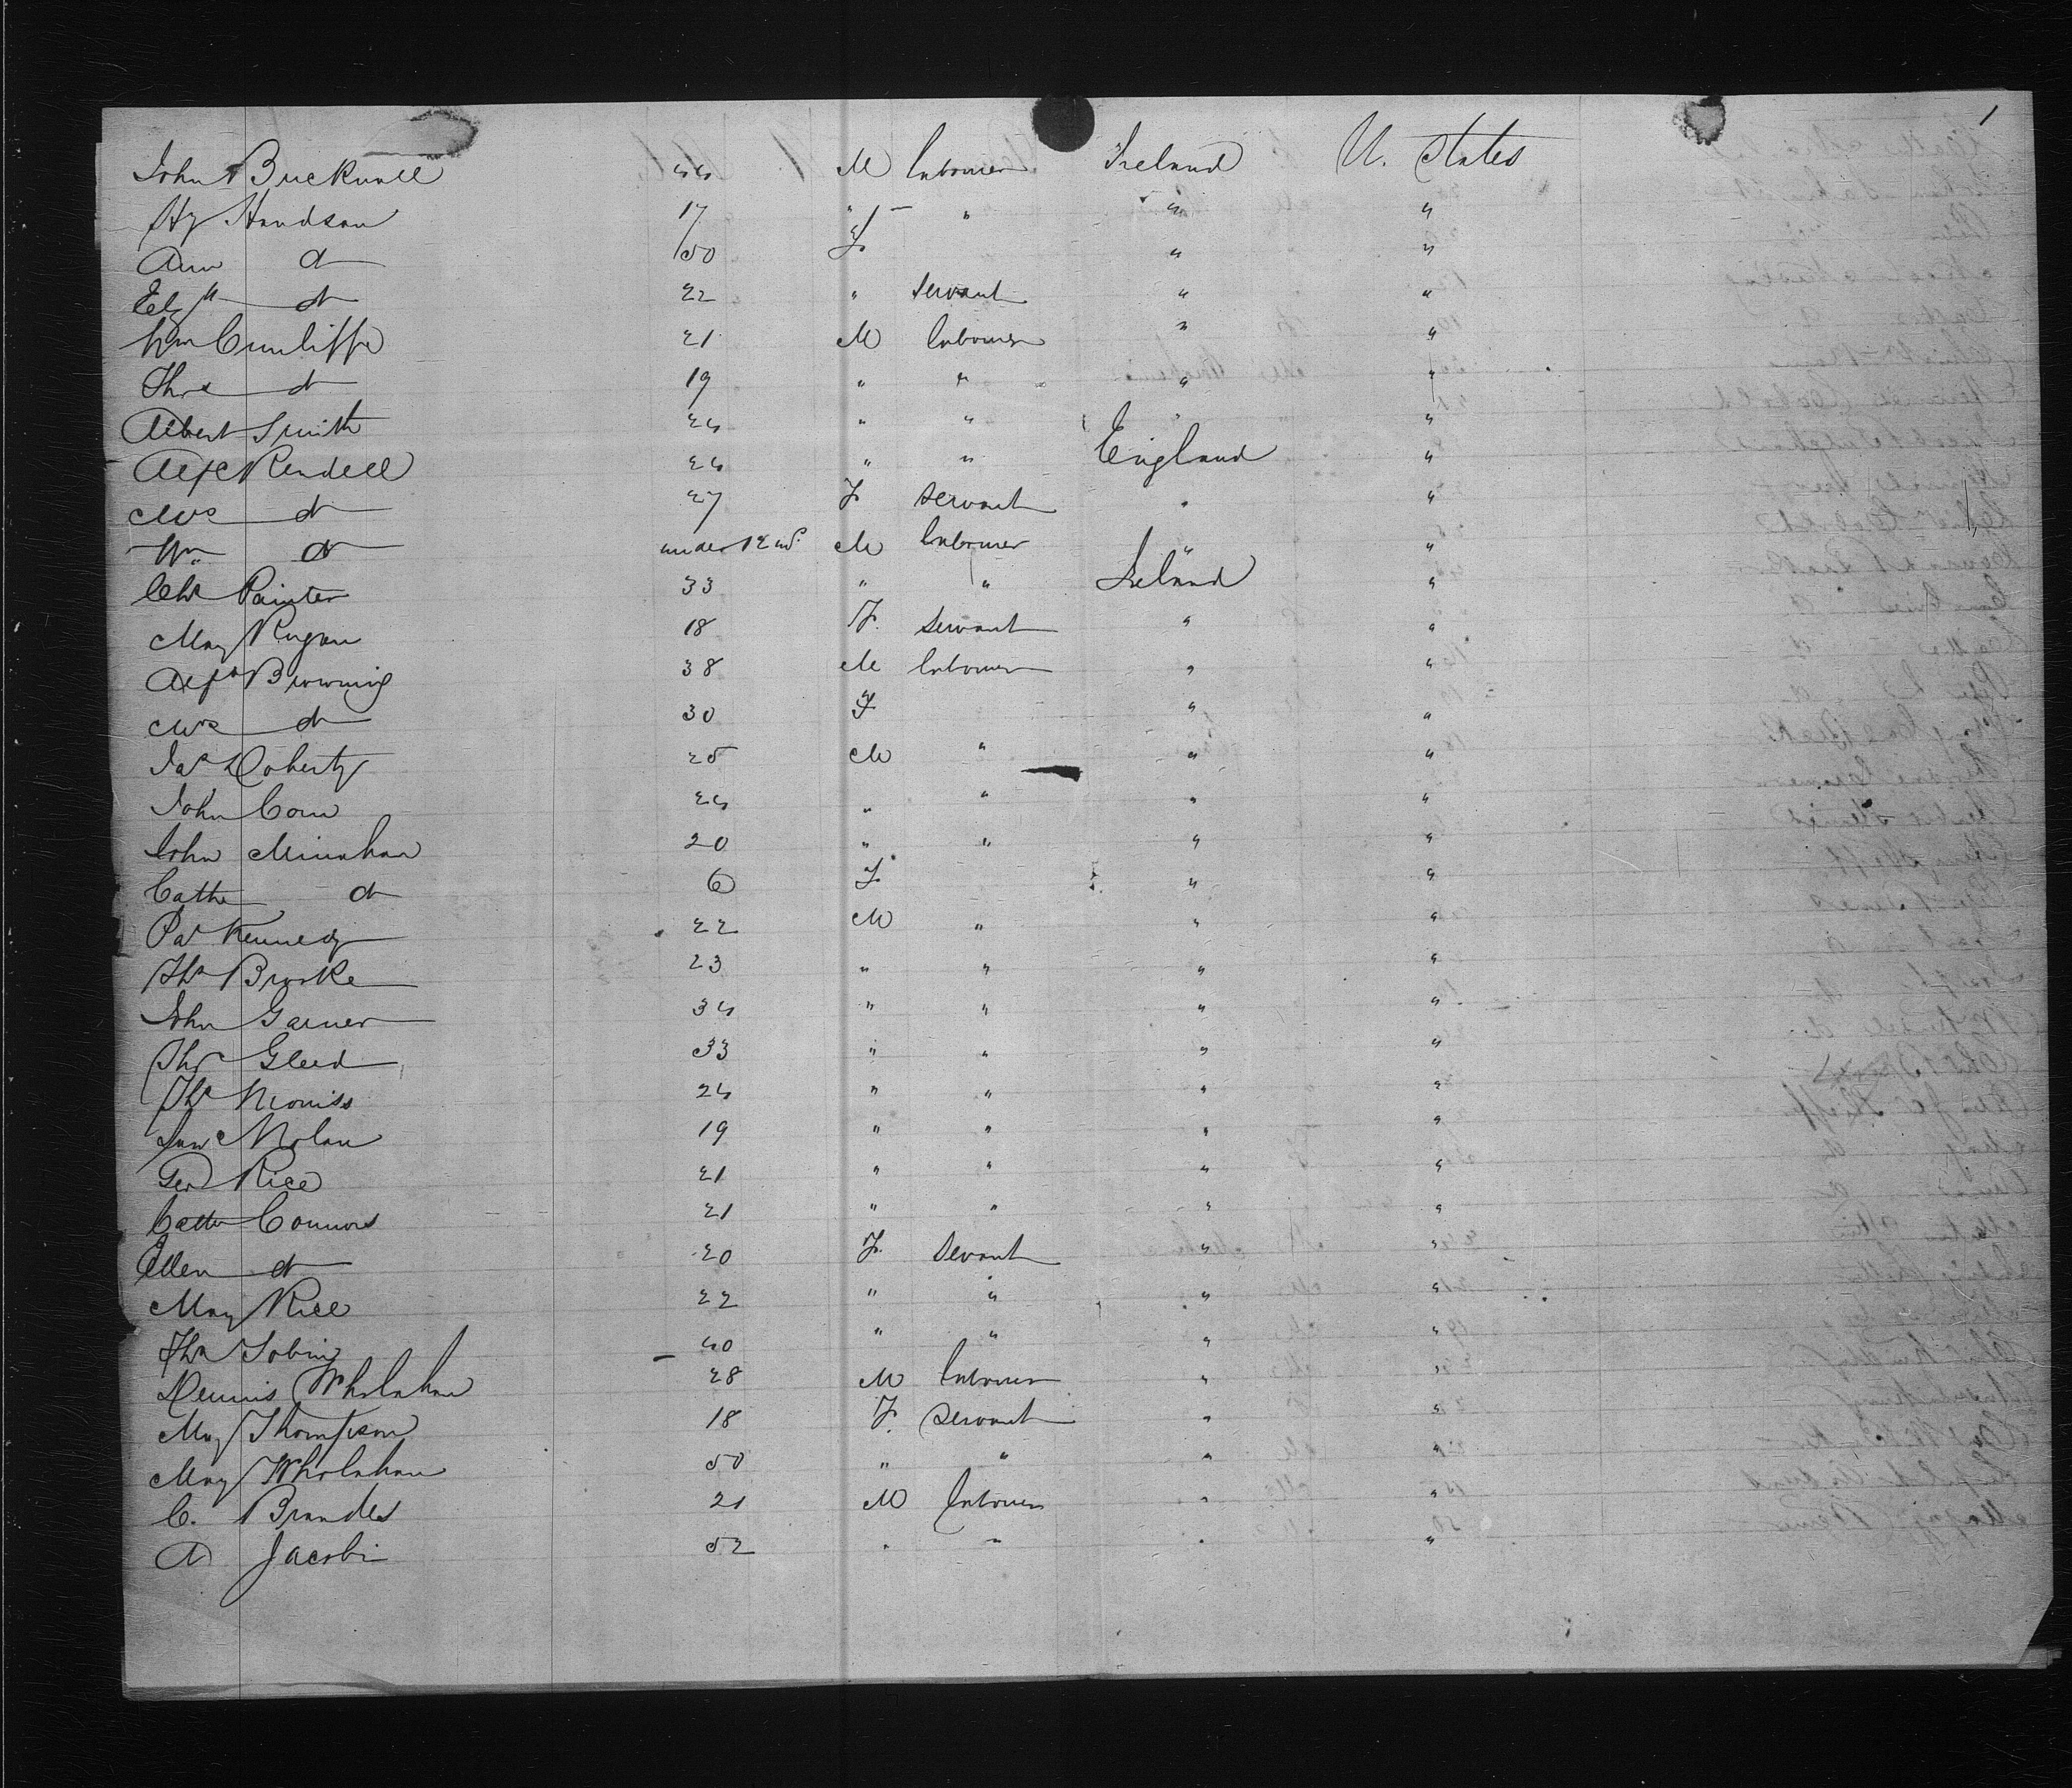 1
John Bucknall 44 M Labourer Ireland U. States
Hy Handson 17 " " " "
Ann do 50 F " "
Elzth do 22 " Servant " "
Wm Cunliffe 21 M Labourer " "
Thos do 19 " " " "
Albert Smith 24 " " " "
Alfd Rendell 24 " " England "
Mrs do 27 F Servant " "
Wm do under 12 M Labourer " "
Chs Painter 33 " " Ireland "
Mary Rugan 18 F. Servant " "
Alfd Browning 38 M Labourer " "
Mrs do 30 F " "
Jas Doherty 25 M " " "
John Corn 24 " " " "
John Minahan 20 " " " "
Cathe do 6 F " "
Pat Kennedy 22 M " " "
Ths Brooke 23 " " " "
John Garner 34 " " " "
Ths Gleed 33 " " " "
Ths 24 " " " "
Nolan 19 " " " "
Geo Rice 21 " " " "
Cathe Connors 21 " " " "
Ellen do 20 F. Servant " "
Mary Rice 22 " " " "
Ths Tobin 40 " " " "
Dennis Wholahan 28 M Labourer " "
May Thompson 18 F. Servant " "
Mary Wholahan 50 " " " "
C. Brandes 21 M Labourer " "
A Jacobi 52 " " " "